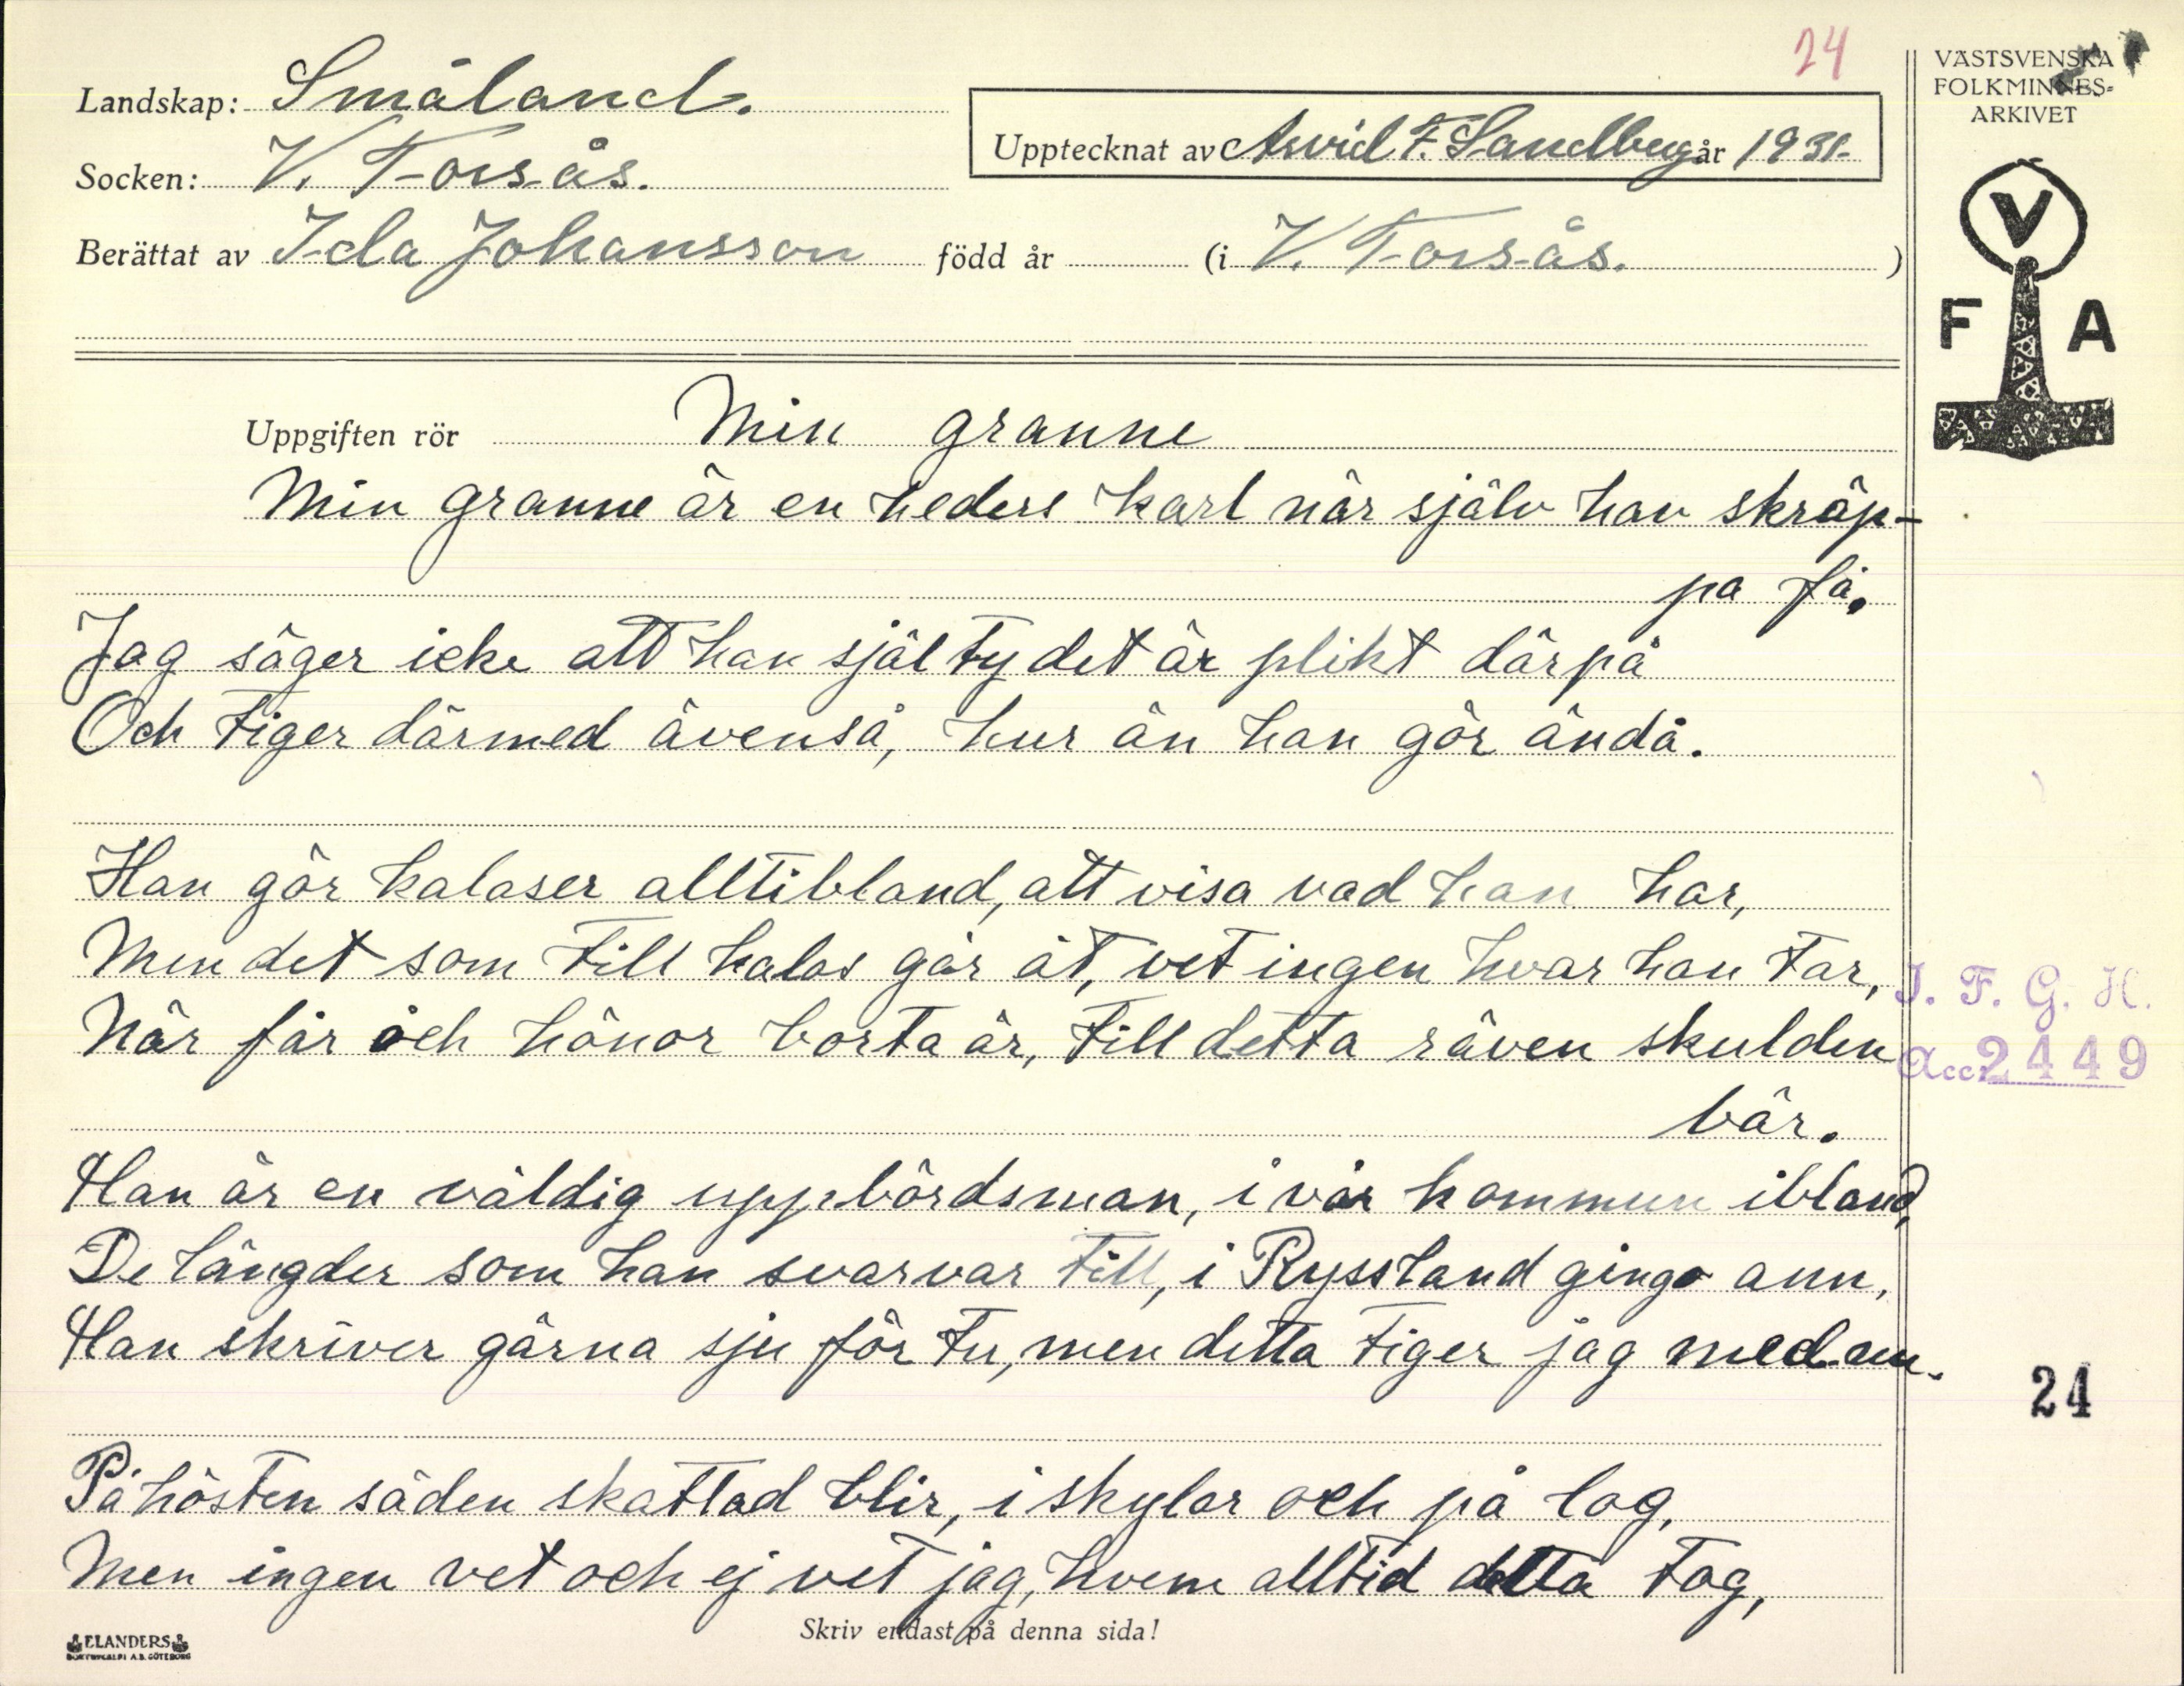 24
Landskap: Småland.
Socken: V. Torsås.
Upptecknat av Arvid F. Sandberg år 1931.
Berättat av Ida Johansson född år (i V. Torsås.)
VÄSTSVENSKA
FOLKMINNES-
ARKIVET
V
F A
Uppgiften rör Min granne
Min granne är en heders karl när själv han skräp-
pa få.
Jag säger icke att han själ ty det är plikt därpå
Och tiger därmed ävenså, hur än han gör ändå.
Han gör kalaser alltibland, att visa vad han har,
Men det som till kalas går åt, vet ingen hvar han tar,
När får och hönor borta är, till detta räven skulden
bär.
Han är en väldig uppbördsman, i vår kommun ibland,
De längder som han svarvar till, i Ryssland gingo ann,
Han skriver gärna sju för tu, men detta tiger jag med nu.
På hösten säden skattad blir, i skylar och på log,
Men ingen vet och ej vet jag, hvem alltid detta tog,
I. F. G. H.
Acc. 2449
24
Skriv endast på denna sida!
ELANDERS
BOKTRYCKERI A.B. GÖTEBORG